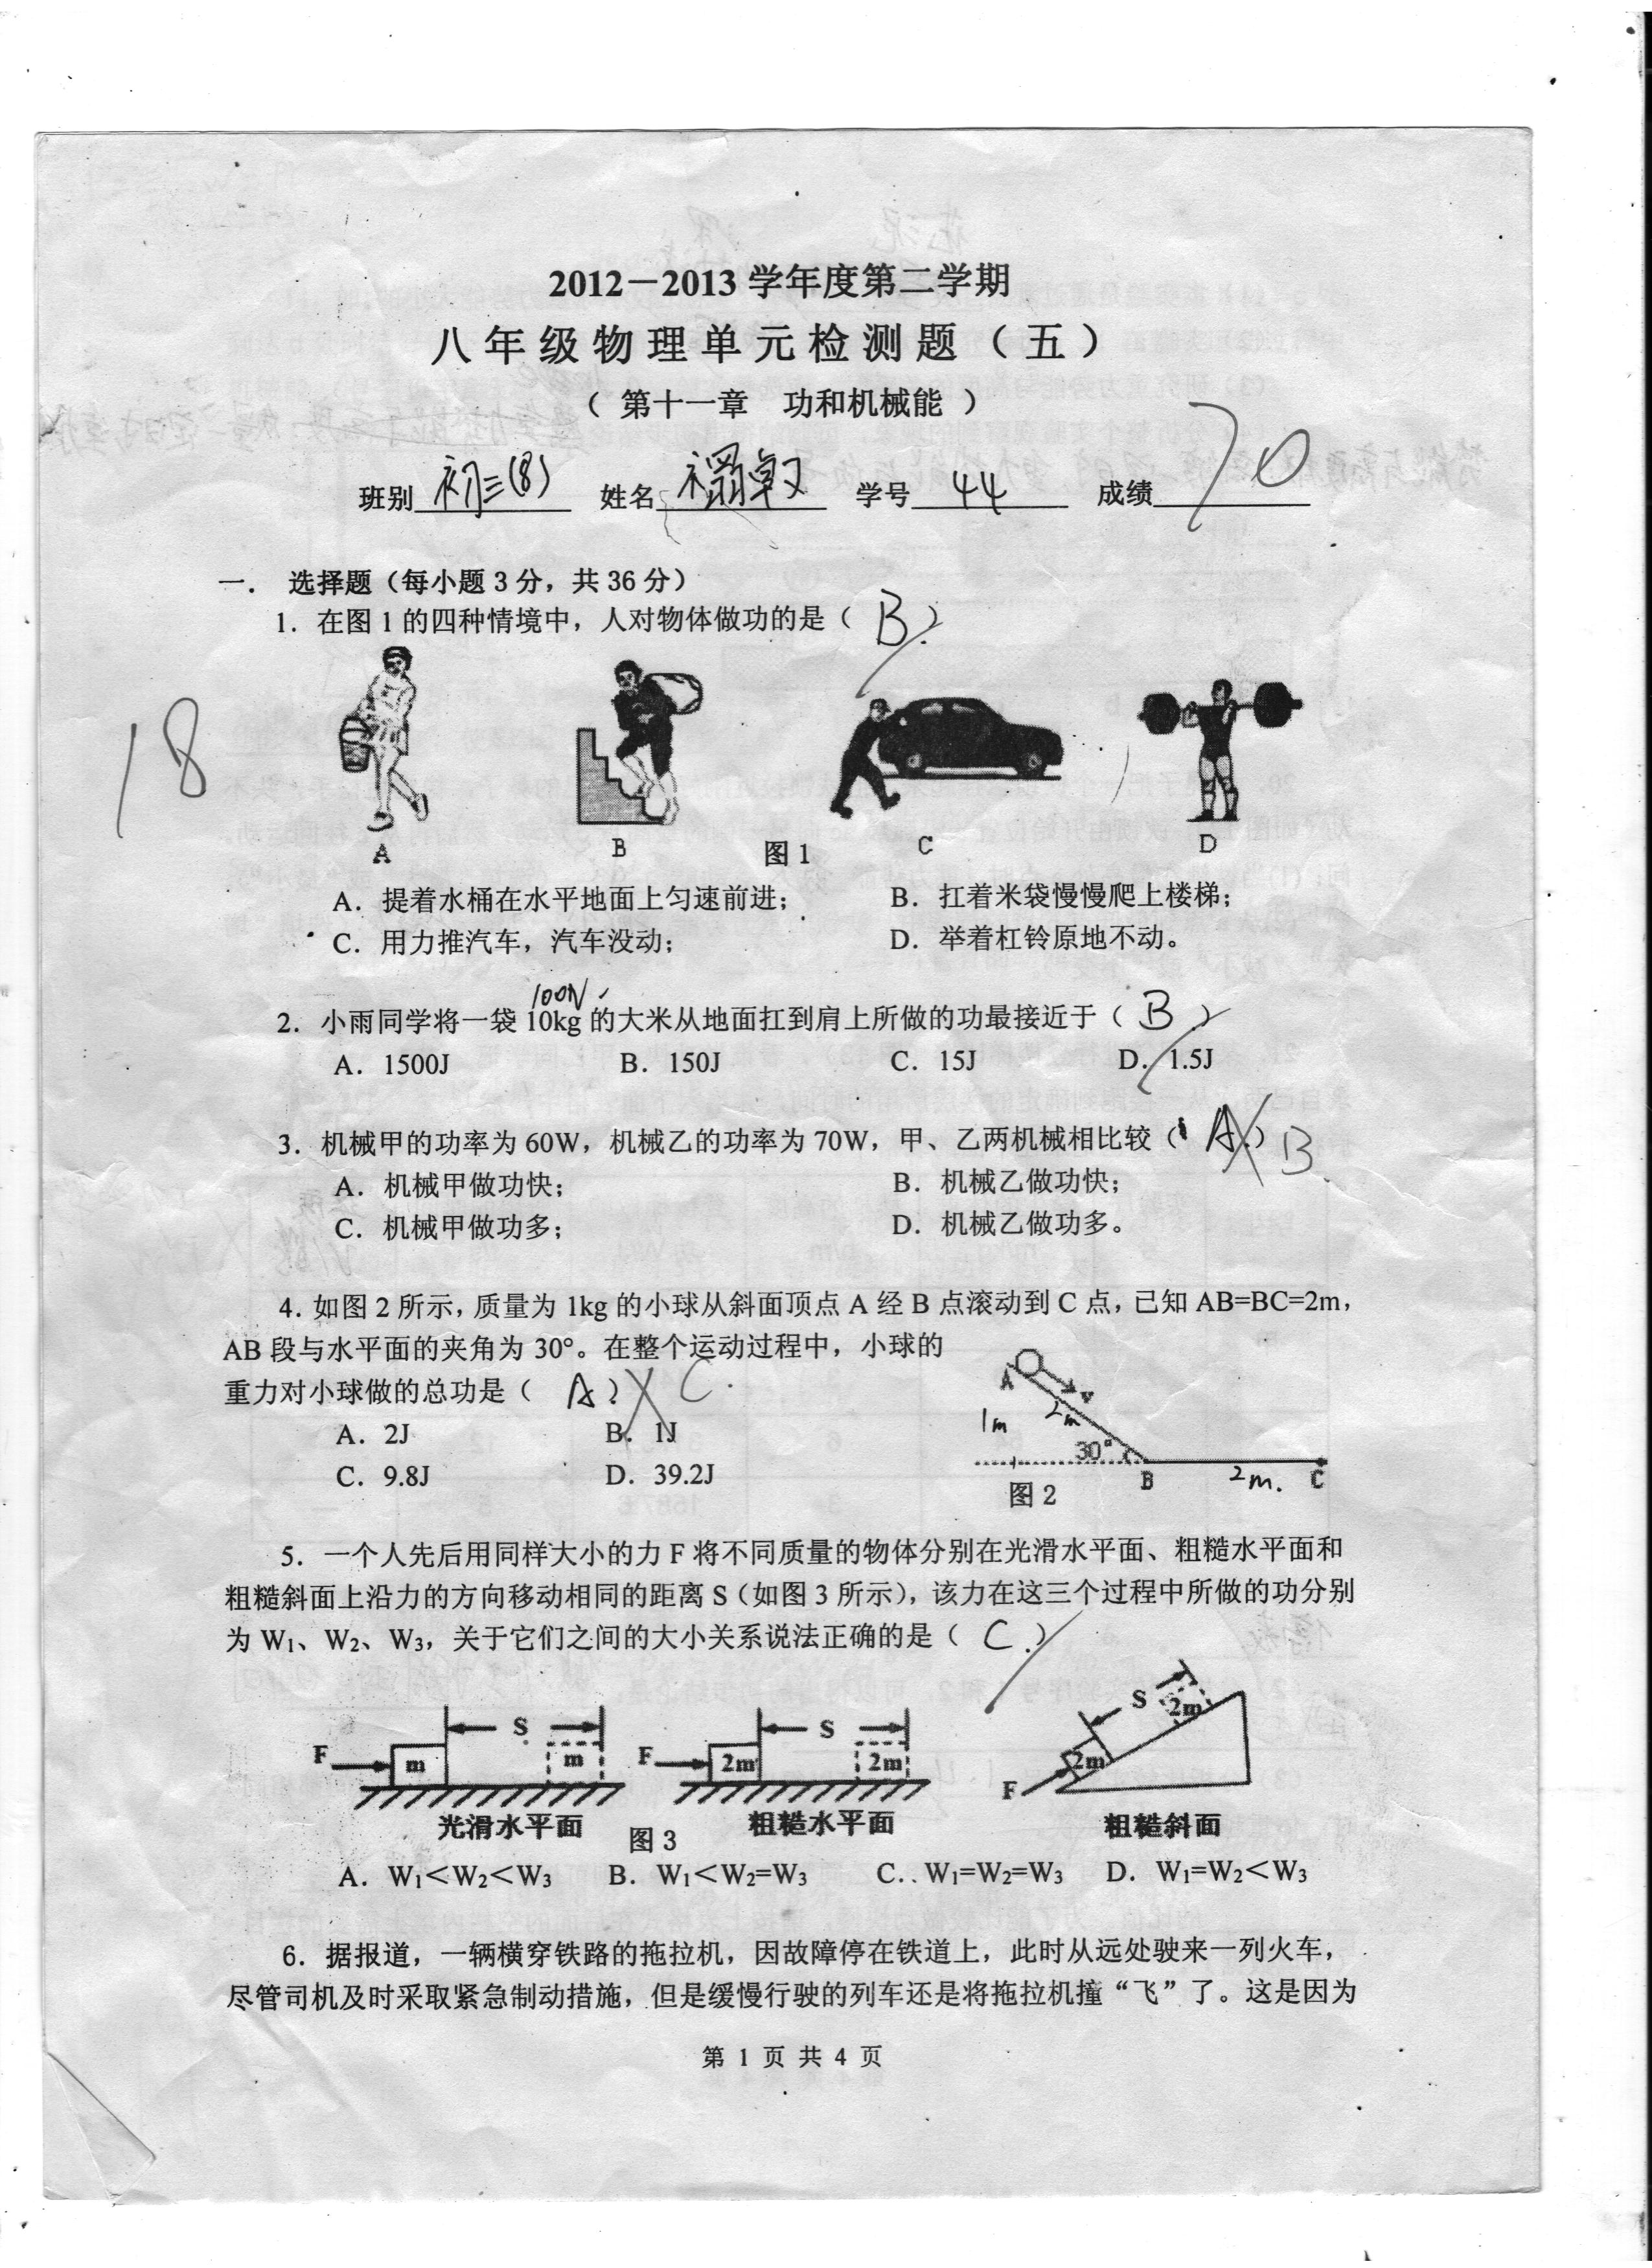 2012－2013 学年度第二学期
八年级物理单元检测题（五）
（ 第十一章 功和机械能 ）
班别 初三(8) 姓名 学号 44 成绩 70
一． 选择题（每小题 3 分，共 36 分）
1．在图 1 的四种情境中，人对物体做功的是（ B ）
18
A B 图 1 C D
A．提着水桶在水平地面上匀速前进； B．扛着米袋慢慢爬上楼梯；
C．用力推汽车，汽车没动； D．举着杠铃原地不动。
100N
2．小雨同学将一袋 10kg 的大米从地面扛到肩上所做的功最接近于（ B ）
A．1500J B．150J C．15J D．1.5J
3．机械甲的功率为 60W，机械乙的功率为 70W，甲、乙两机械相比较（ A ） B
A．机械甲做功快； B．机械乙做功快；
C．机械甲做功多； D．机械乙做功多。
4. 如图 2 所示，质量为 1kg 的小球从斜面顶点 A 经 B 点滚动到 C 点，已知 AB=BC=2m，
AB 段与水平面的夹角为 30°。在整个运动过程中，小球的
重力对小球做的总功是（ A ） C
A．2J B．1J
C．9.8J D．39.2J
A v
1m 2m
30°
B 2m. C
图 2
5．一个人先后用同样大小的力 F 将不同质量的物体分别在光滑水平面、粗糙水平面和
粗糙斜面上沿力的方向移动相同的距离 S（如图 3 所示），该力在这三个过程中所做的功分别
为 W₁、W₂、W₃，关于它们之间的大小关系说法正确的是（ C ）
S S S 2m
F m m F 2m 2m F 2m
光滑水平面 图 3 粗糙水平面 粗糙斜面
A．W₁＜W₂＜W₃ B．W₁＜W₂=W₃ C．W₁=W₂=W₃ D．W₁=W₂＜W₃
6．据报道，一辆横穿铁路的拖拉机，因故障停在铁道上，此时从远处驶来一列火车，
尽管司机及时采取紧急制动措施，但是缓慢行驶的列车还是将拖拉机撞“飞”了。这是因为
第 1 页 共 4 页